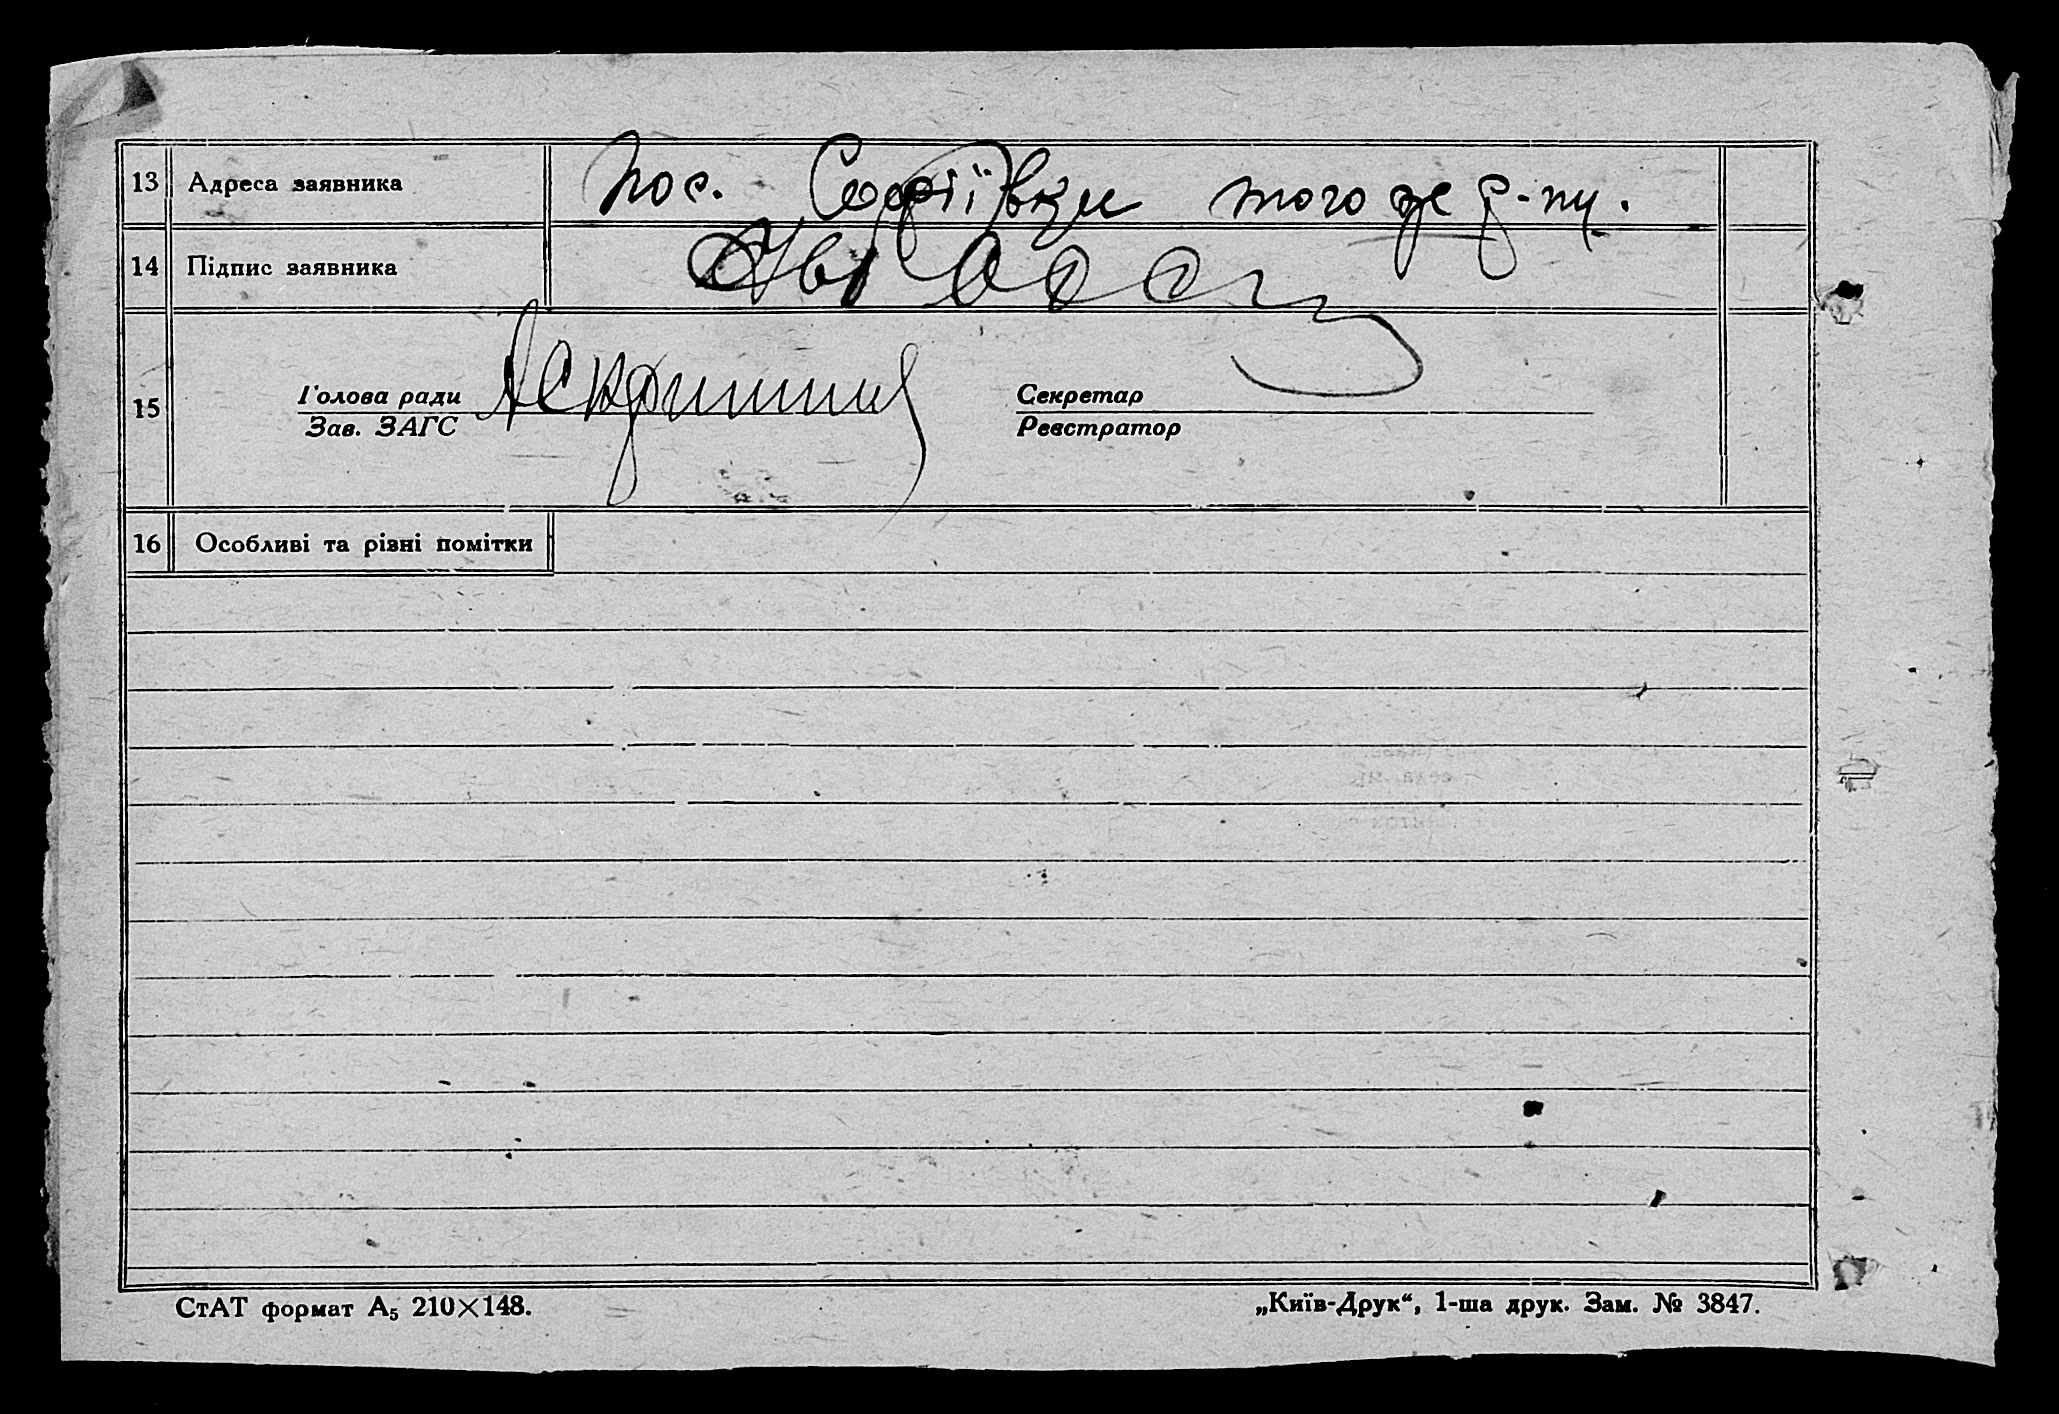 13 Адреса заявника пос. Софіївки того же р-ну.
14 Підпис заявника
15 Голова ради
Зав. ЗАГС
Секретар
Реєстратор
16 Особливі та різні помітки
СтАТ формат А₅ 210×148.
„Київ-Друк“, 1-ша друк. Зам. № 3847.